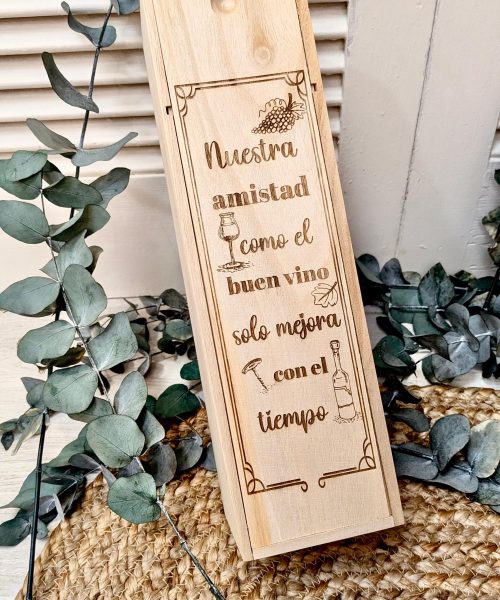 Nuestra
amistad
como el
buen vino
solo mejora
con el
tiempo